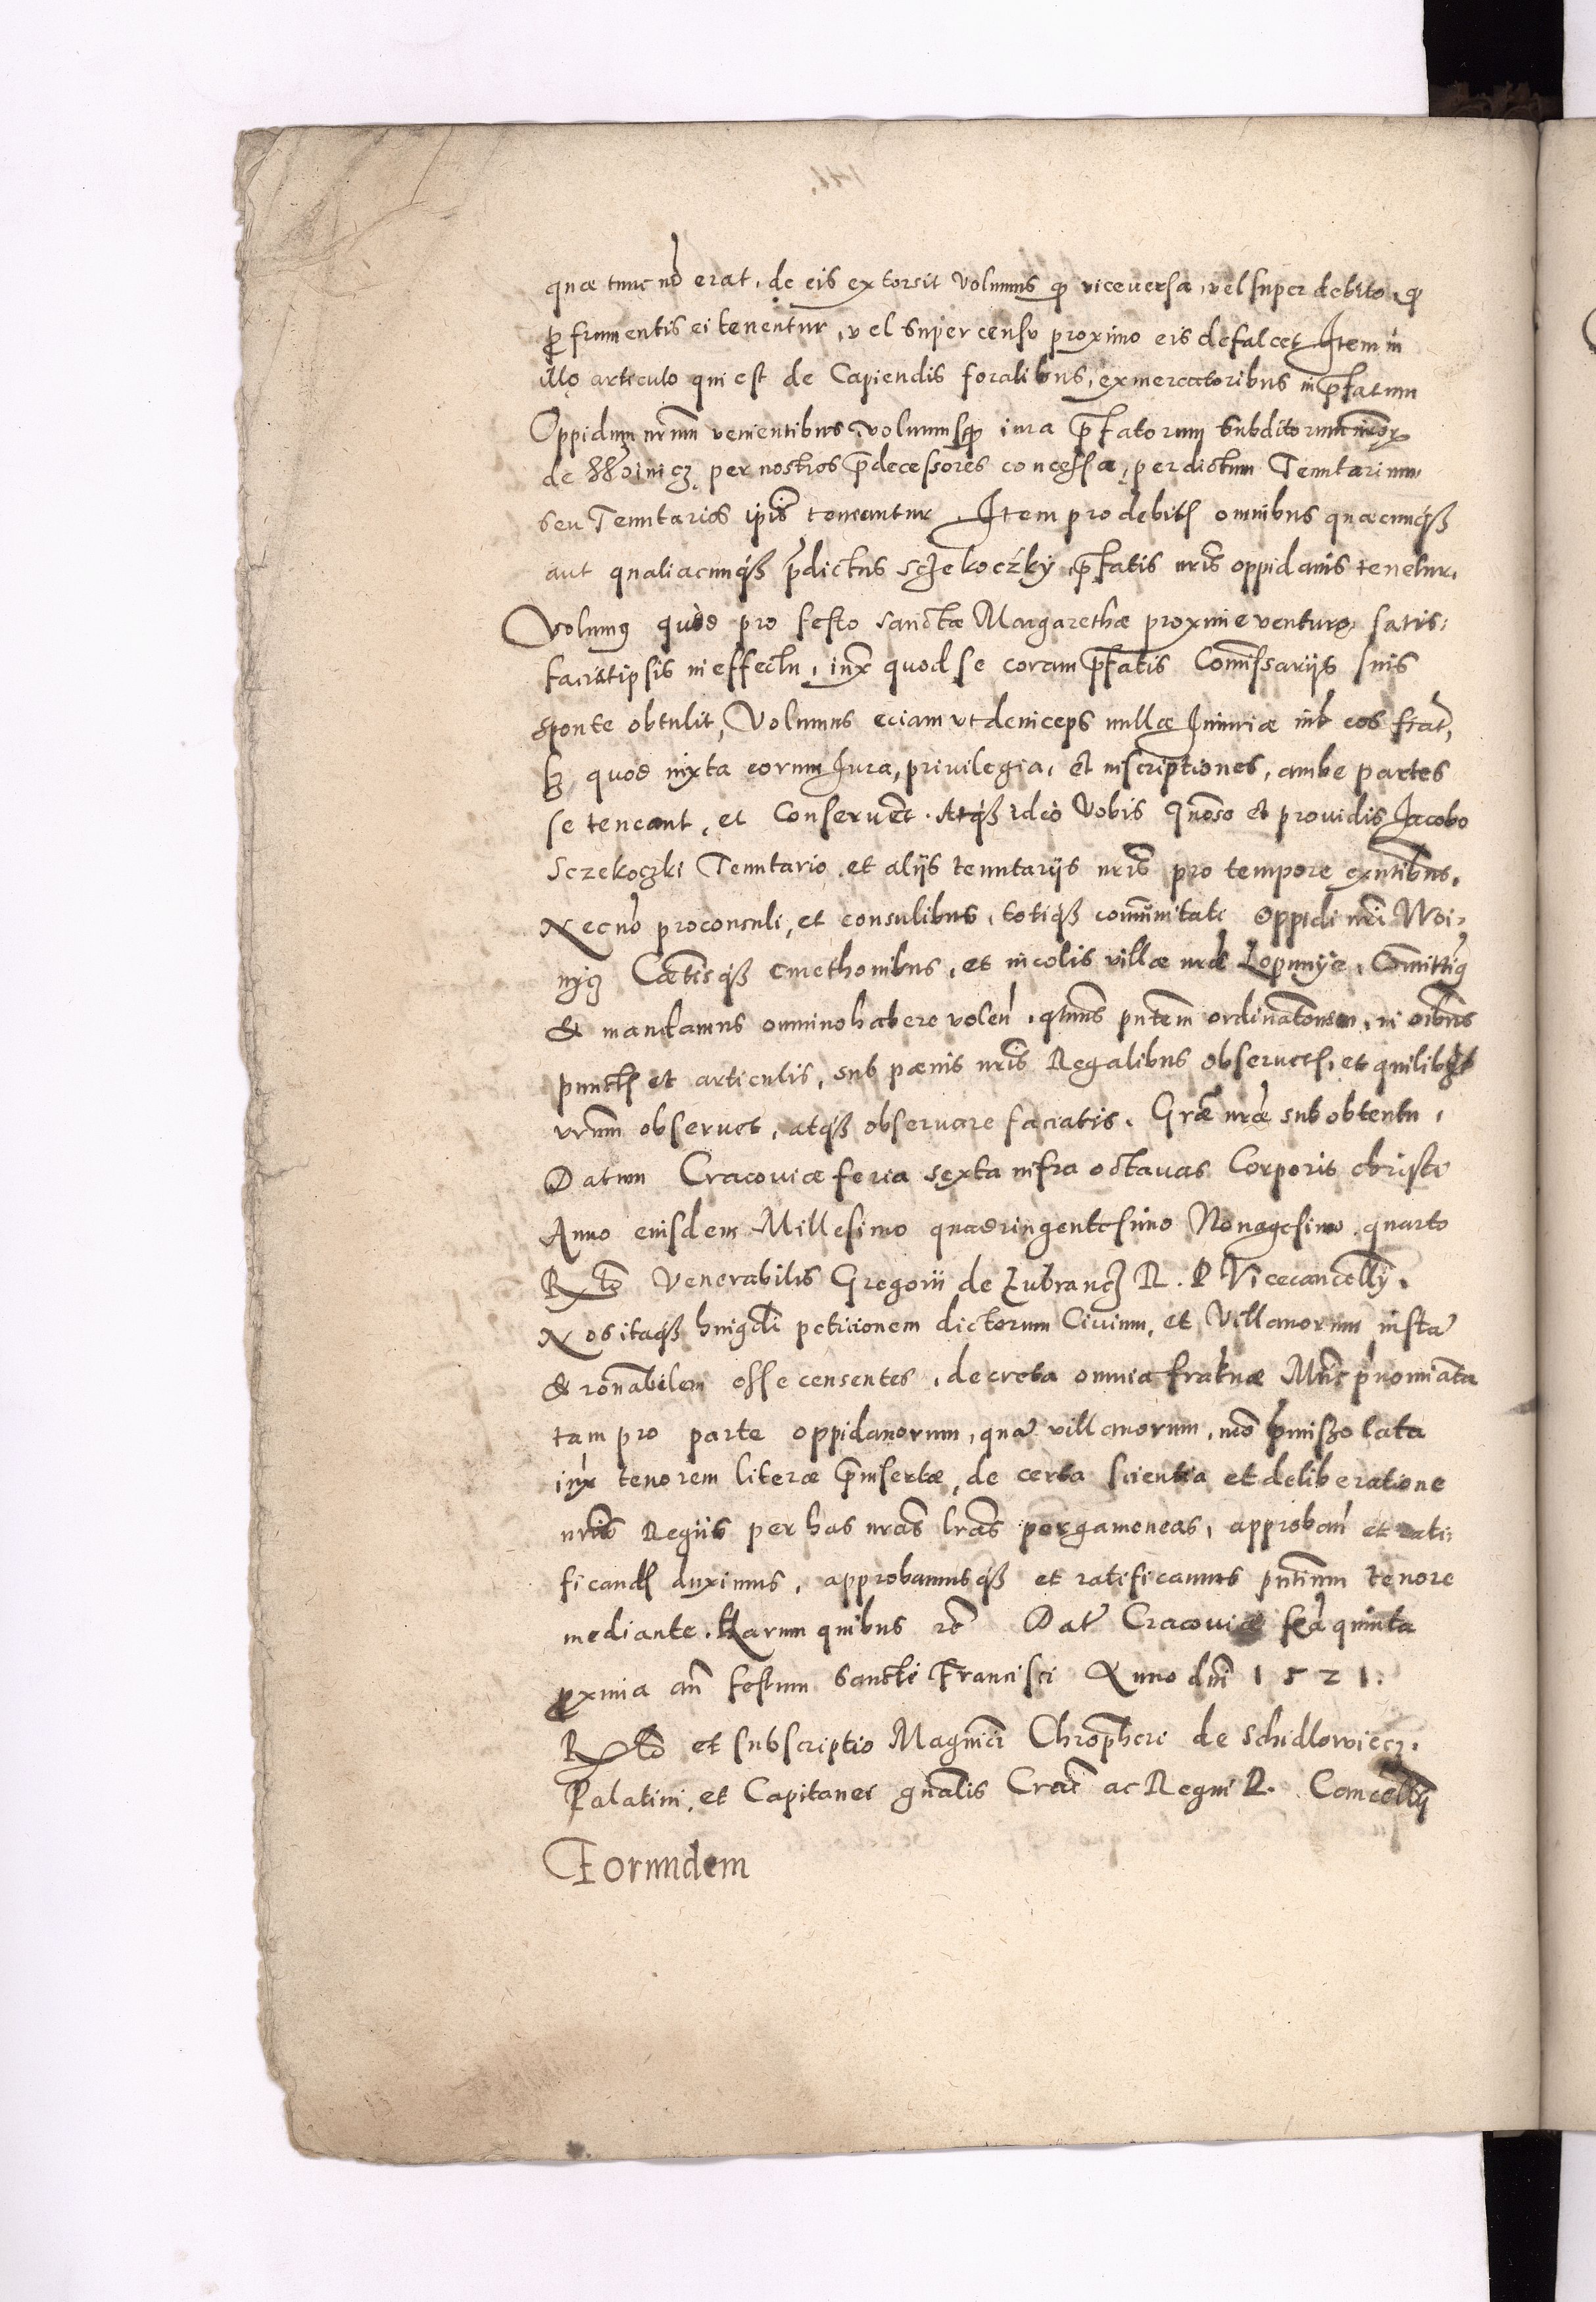 quae tunc nō erat, de eis extorsit Volumus q̃ viceversa, vel super debito, q̃
p̱ frumentis ei tenentur, vel super censu proximo eis defalcet Item in
illo articulo qui est de Capiendis foralibus, ex mercatoribus in p̄fatum
Oppidum nr̄um venientibus, volumus q̃ iura p̄fatorum Subditorum nr̄or̃
de Woinicz per nostros p̄decessores concessa, per dictum Tenutarium
seu Tenutarios ip̄is teneantur Item pro debit̃ omnibus quaecunq́ꝫ
aut qualiacunq́ꝫ p̄dictus Sczekoczky, p̄fatis nr̄is oppidanis tenetur,
Volumꝰ quod pro festo sanctae Margarethae proxime venturo, satis:
faciat ipsis in effectu, iux̄ quod se coram p̄fatis Com̄issarijs suis
sponte obtulit, Volumus eciam ut deniceps nullae Iniuriae int̃ eos fiat̃,
sꝫ, quod iuxta eorum Iura, privilegia, et inscriptiones, ambe partes
se teneant, et Conservent. Atq́ꝫ ideo Vobis gn̄oso et providis Jacobo
Sczekoczki Tenutario et alijs tenutarijs nr̄is pro tempore exn̄tibus,
Necnō proconsuli, et consulibus, totiq́ꝫ com̄unitati Oppidi nr̄i Woi:
nijcz Caet̄isq́ꝫ cmethonibus, et incolis villae nr̄ae Lopunye, Com̄ittim̃ꝰ
& mandamus omnino habere volen̄, qt̄nus pn̄tem ordinat̄onem, in oīb̄us
punct̃ et articulis, sub paenis nr̄is Regalibus observet̃, et quilibet
vr̄um observet, atq́ꝫ observare faciatis, Gr̄ae nr̄ae sub obtentu,
Datum Cracoviae feria sexta infra octavas Corporis christi
Anno eiusdem Millesimo quadringentesimo Nonagesimo quarto
R̃t̄o Venerabilis Gregorii de Lubrancz R. P. Vicecancell̄ij,
Nos itaq́ꝫ hui9di peticionem dictorum Civium, et Villanorum iusta᷉
& ron̄abilem esse censentes, decreta omnia frat̃nae Mt̄is p̄nomīata
tam pro parte oppidanorum, qua᷉ villanorum, mō p̄misso lata
iux̄ tenorem literae p̄insertae, de certa scientia et deliberatione
nr̄is Regiis per has nr̄as lr̄as pergameneas, approban̄ et rati:
ficand̃ duximus, approbamusq́ꝫ et ratificamus pn̄tium tenore
mediante. Harum quibus rē Dat̃ Cracoviae fer̄a quinta
p̱xima an̄ festum Sancti Francisci Anno dn̄i 1521.
R̃t̄o et subscriptio Magn̄ici Chrop̄heri de Schidlowiecz,
Palatini, et Capitanei gn̄alis Crac̄ ac Regni R. Cancell̄ij
Eorundem